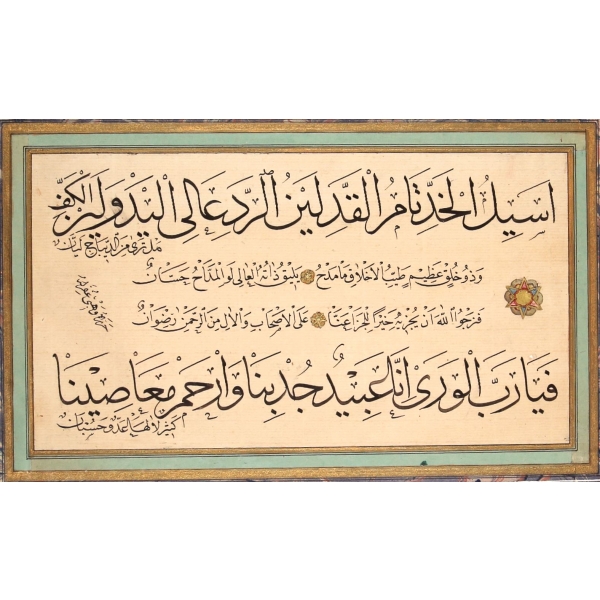 اسيل الخد تام القد لين الرد عالي اليد ولر الكف
وذو خلق عظيم طيب الاخلاق ما مدح يليق ذاته العالي لو المداح حسان
فنرجو الله ان يجزيه خيرا للجزا عنا على الاصحاب والال من الرحمن رضوان
فيا رب الورى انا عبيد جد بنا وارحم معاصينا
كثير لا لها عد وحسبان